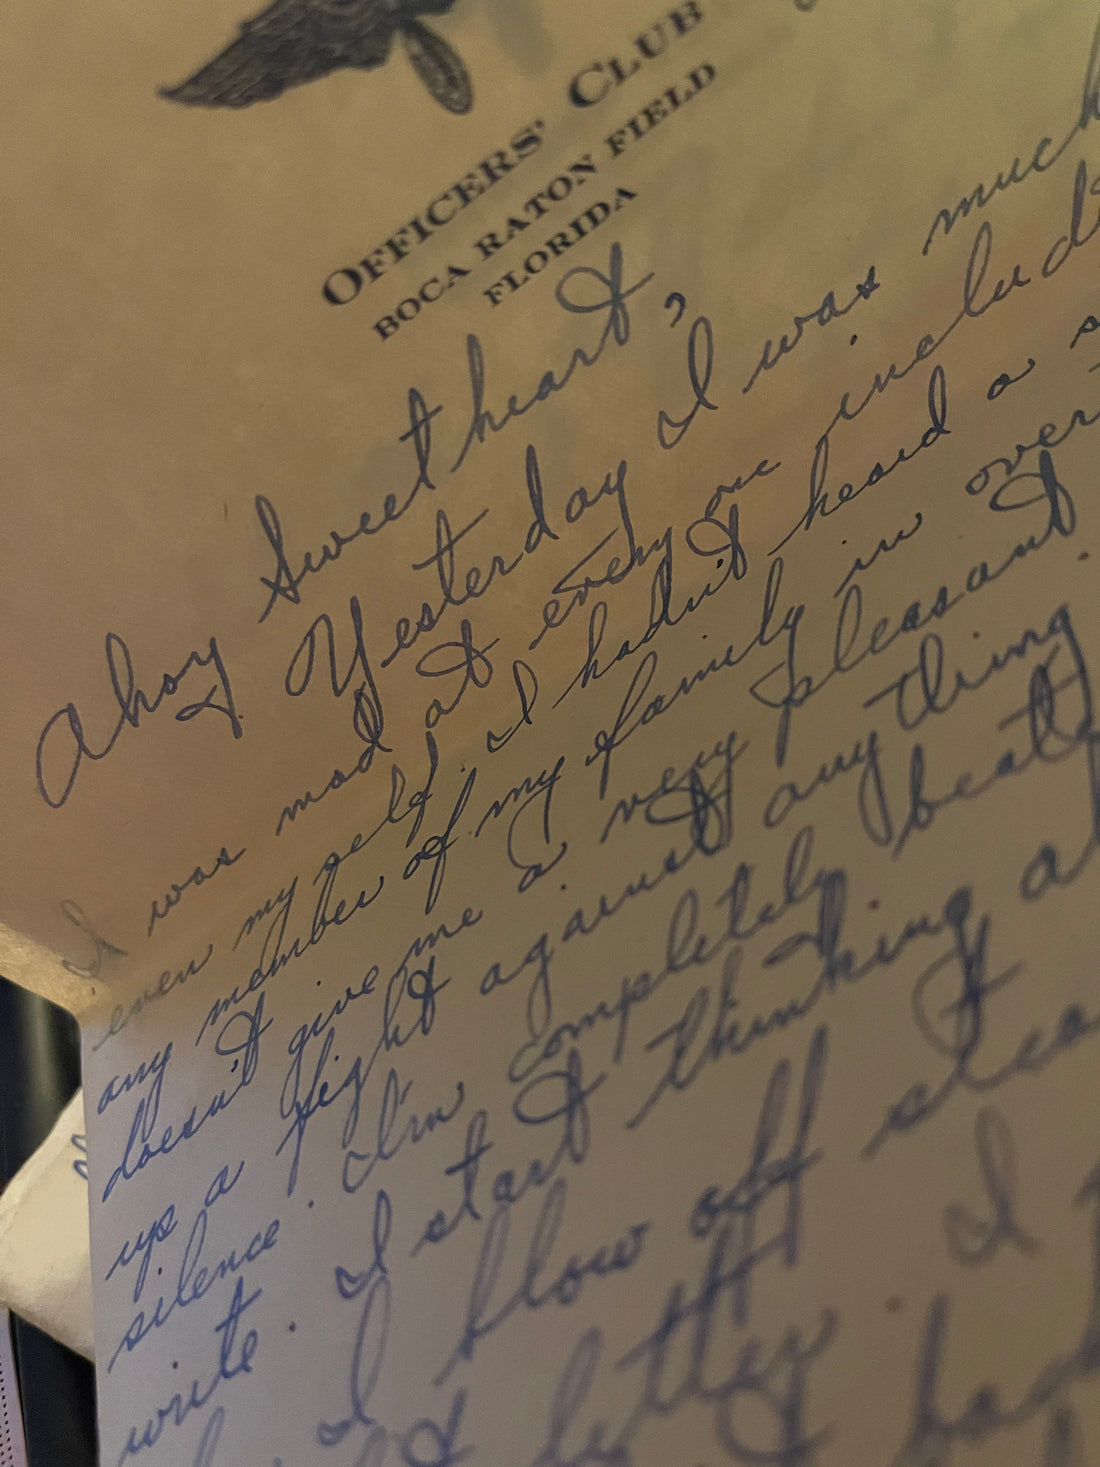 OFFICERS' CLUB
BOCA RATON FIELD
FLORIDA
Ahoy Sweetheart,
Yesterday I was much
I was mad at every one includ
even my self. I hadn't heard a s
any member of my family in over
doesn't give me a very pleasant
up a fight against any thing
silence. I'm completely beat
write. I start thinking a
I blow off stea
letter. I
had